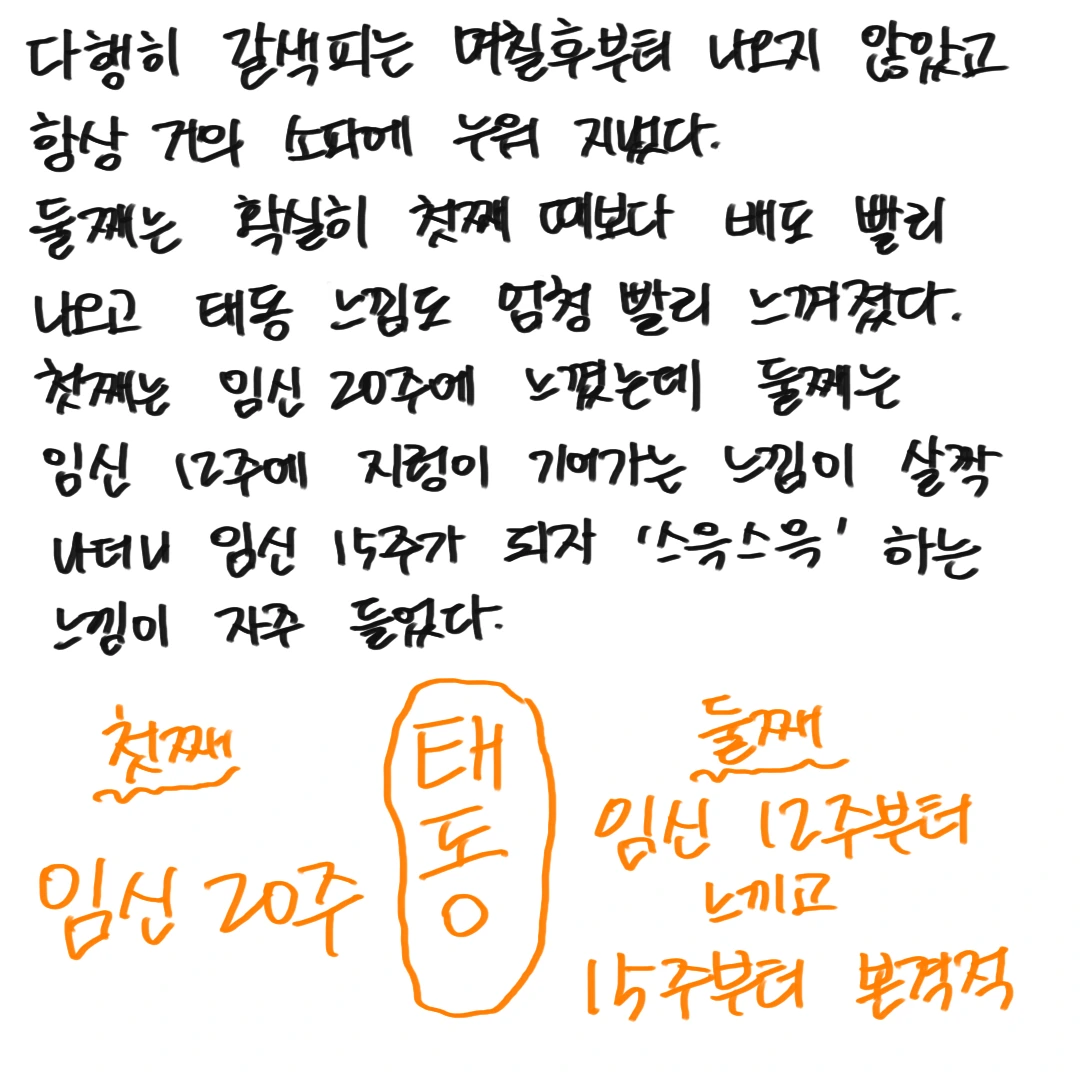 다행히 갈색피는 며칠후부터 나오지 않았고
항상 거의 소파에 누워 지냈다.
둘째는 확실히 첫째 때보다 배도 빨리
나오고 태동 느낌도 엄청 빨리 느껴졌다.
첫째는 임신 20주에 느꼈는데 둘째는
임신 12주에 지렁이 기어가는 느낌이 살짝
나더니 임신 15주가 되자 '스윽스윽' 하는
느낌이 자주 들었다.
첫째
임신 20주
태동
둘째
임신 12주부터
느끼고
15주부터 본격적